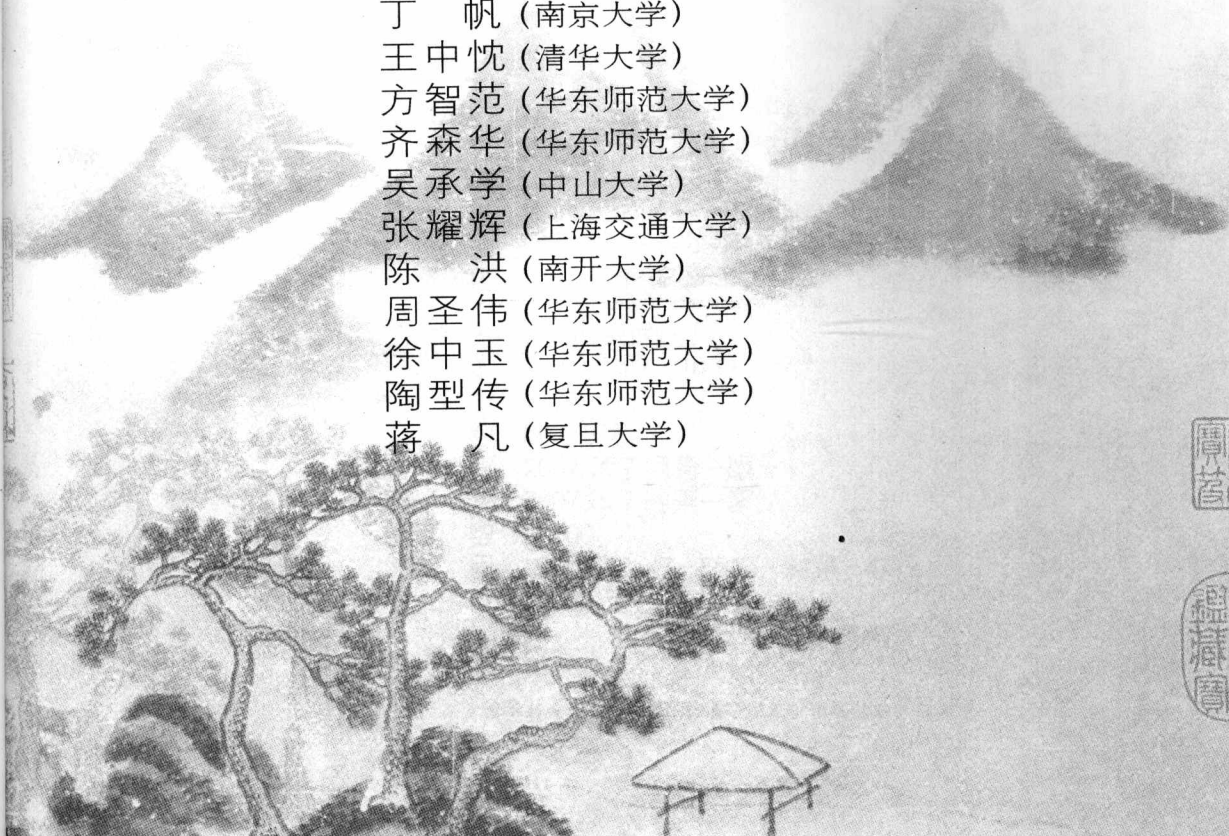 丁　帆(南京大学)
王中忱(清华大学)
方智范(华东师范大学)
齐森华(华东师范大学)
吴承学(中山大学)
张耀辉(上海交通大学)
陈　洪(南开大学)
周圣伟(华东师范大学)
徐中玉(华东师范大学)
陶型传(华东师范大学)
蒋　凡(复旦大学)
鑑藏寶